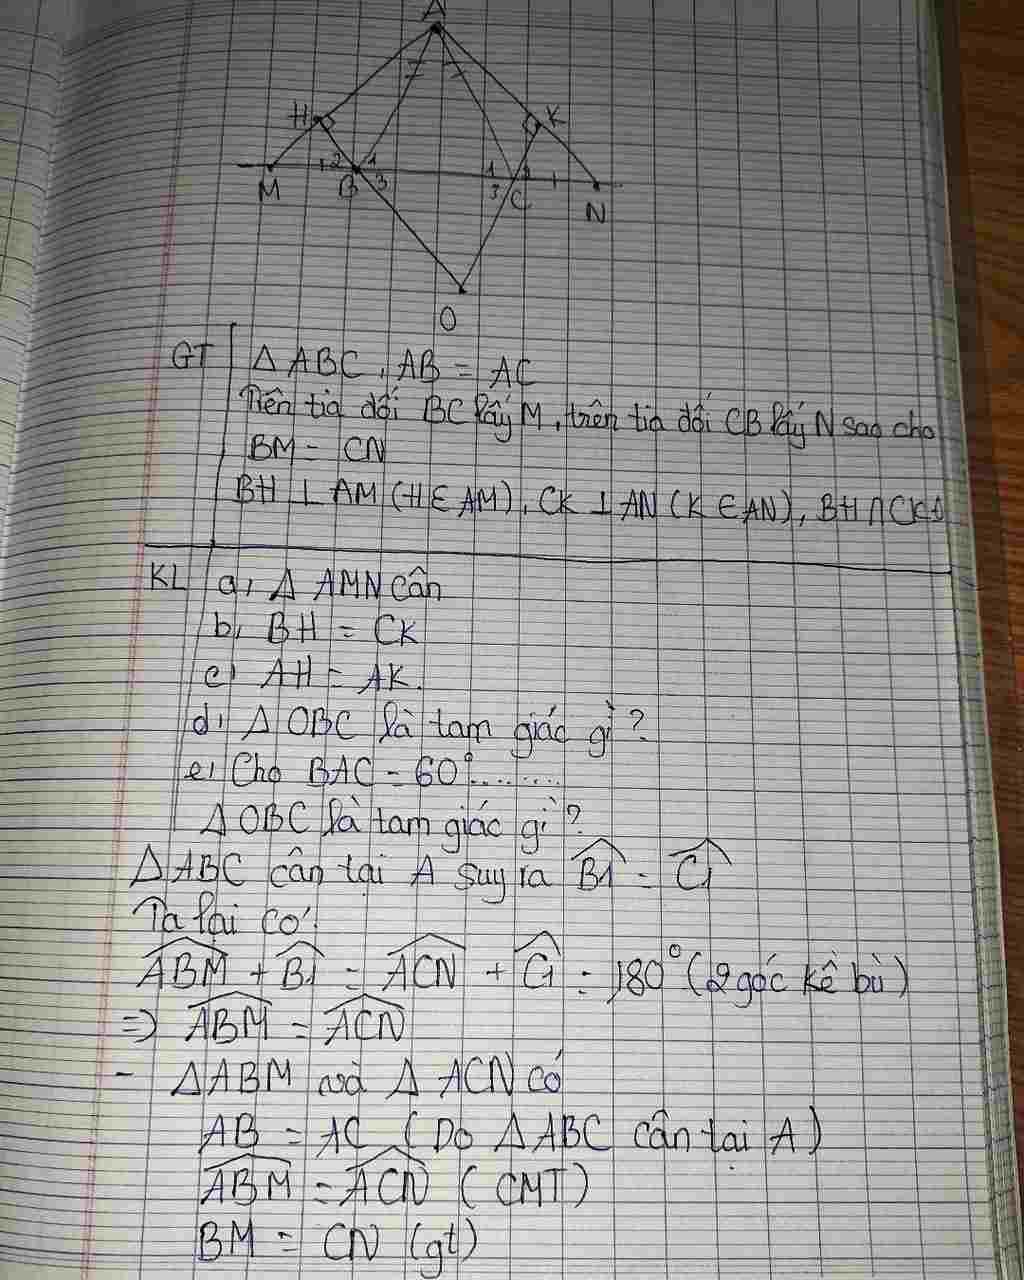 A
H K
2 1 1 2
M B 3 3 C N
O
GT ΔABC, AB = AC
Trên tia đối BC lấy M, trên tia đối CB lấy N sao cho
BM = CN
BH ⊥ AM (H ∈ AM), CK ⊥ AN (K ∈ AN), BH ∩ CK
KL a, Δ AMN cân
b, BH = CK
c, AH = AK.
d, Δ OBC là tam giác gì?
e, Cho BAC = 60°........
ΔOBC là tam giác gì?
ΔABC cân tại A suy ra B̂1 = Ĉ1
Ta lại có:
ABM + B1 = ACN + C1 = 180° (2 góc kề bù)
=> ABM = ACN
- ΔABM và ΔACN có
AB = AC (Do ΔABC cân tại A)
ABM = ACN (CMT)
BM = CN (gt)